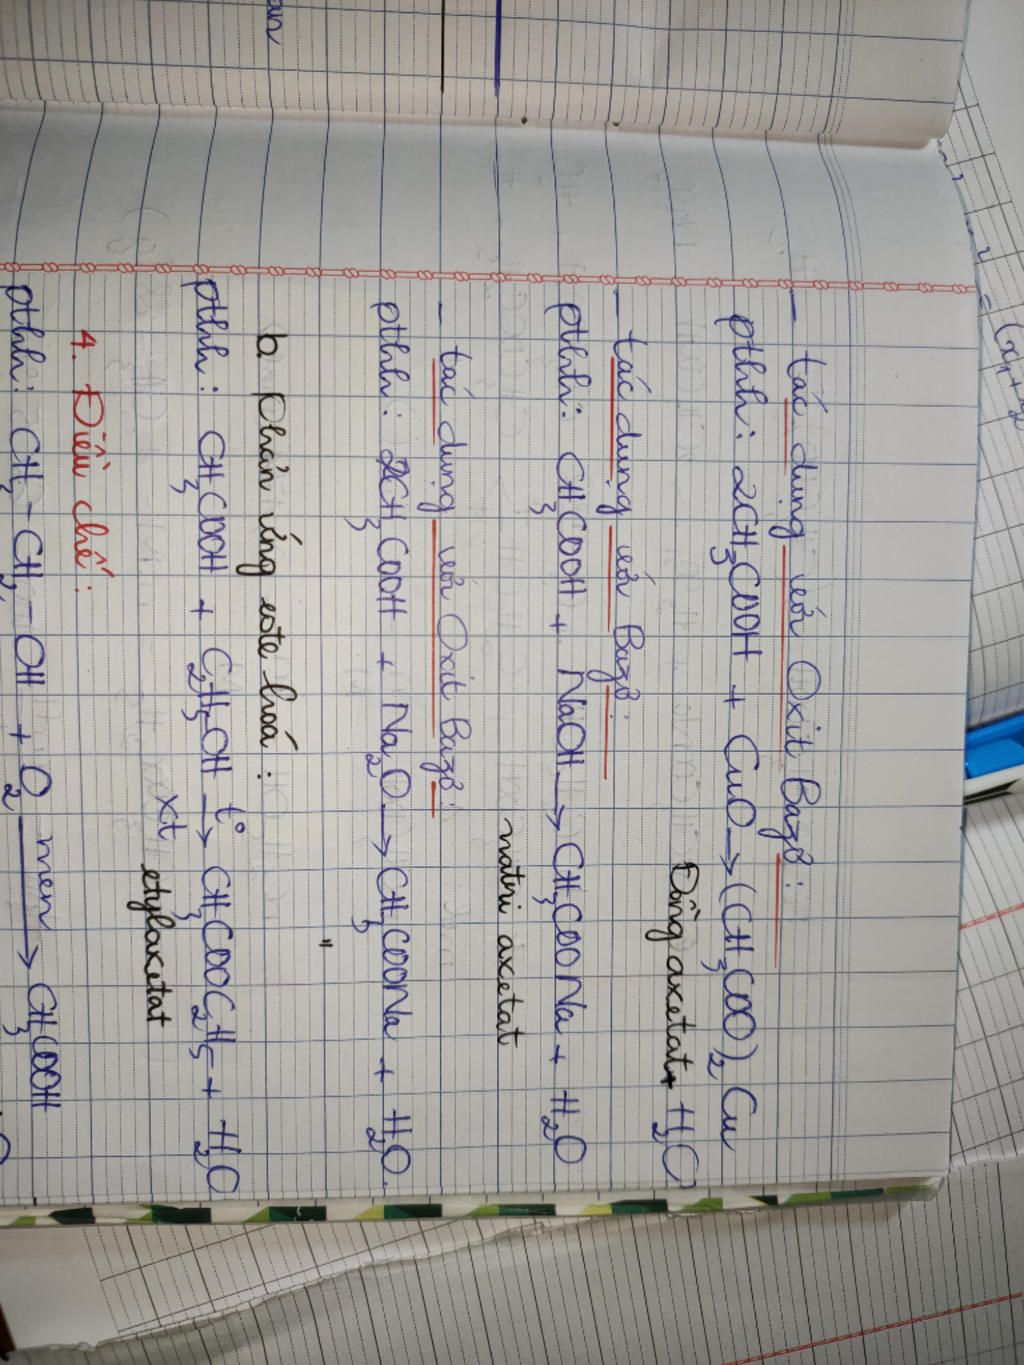 - tác dụng với Oxit Bazơ:
pthh: 2CH3COOH + CuO → (CH3COO)2 Cu
Đồng axetat + H2O
- tác dụng với Bazơ:
pthh: CH3COOH + NaOH → CH3COONa + H2O
natri axetat
- tác dụng với Oxit Bazơ:
pthh: 2CH3COOH + Na2O → CH3COONa + H2O.
"
b. Phản ứng este hoá:
pthh: CH3COOH + C2H5OH t° → CH3COOC2H5 + H2O
xt etylaxetat
4. Điều chế:
pthh: CH3-CH2-OH + O2 men → CH3COOH